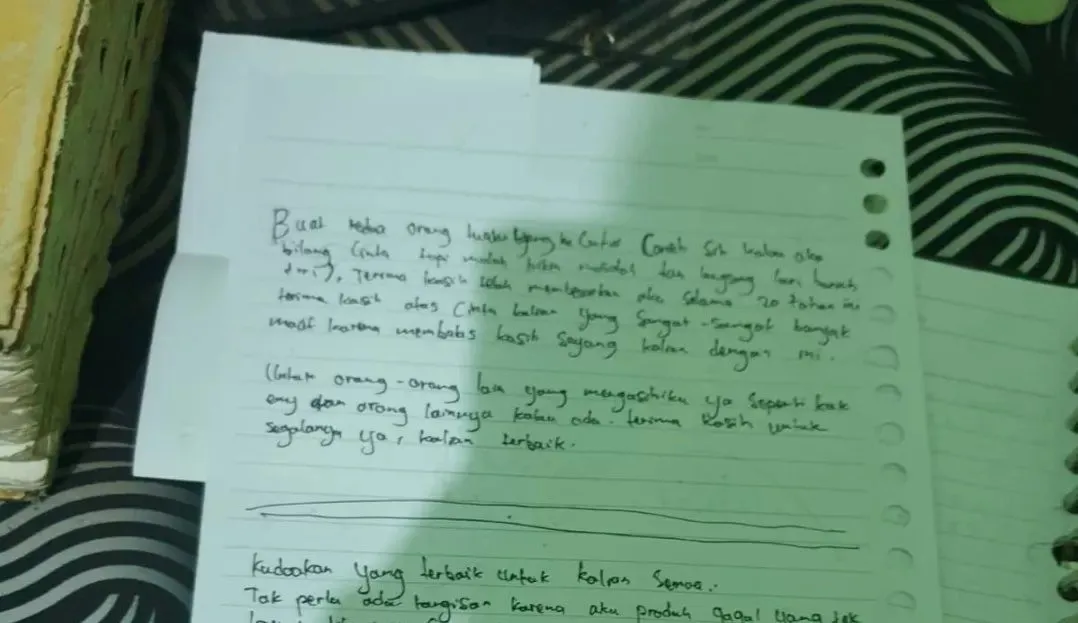 Buat kedua orang tuaku yang ku Cintai Coneh sih kalau aku
bilang Cinta tapi malah bikin masalah dan langsung lari bunuh
diri), Terima kasih telah membesarkan aku selama 20 tahun ini
terima kasih atas Cinta kalian yang Sangat-Sangat banyak
maaf karena membalas kasih Sayang kalian dengan ini.
Untuk orang-orang lain yang mengasihiku ya Seperti kak
emy dan orang lainnya kalau ada. terima kasih untuk
Segalanya ya, kalian terbaik.
Kudoakan yang terbaik untuk kalian Semua.
Tak perlu ada tangisan karena aku produk gagal yang